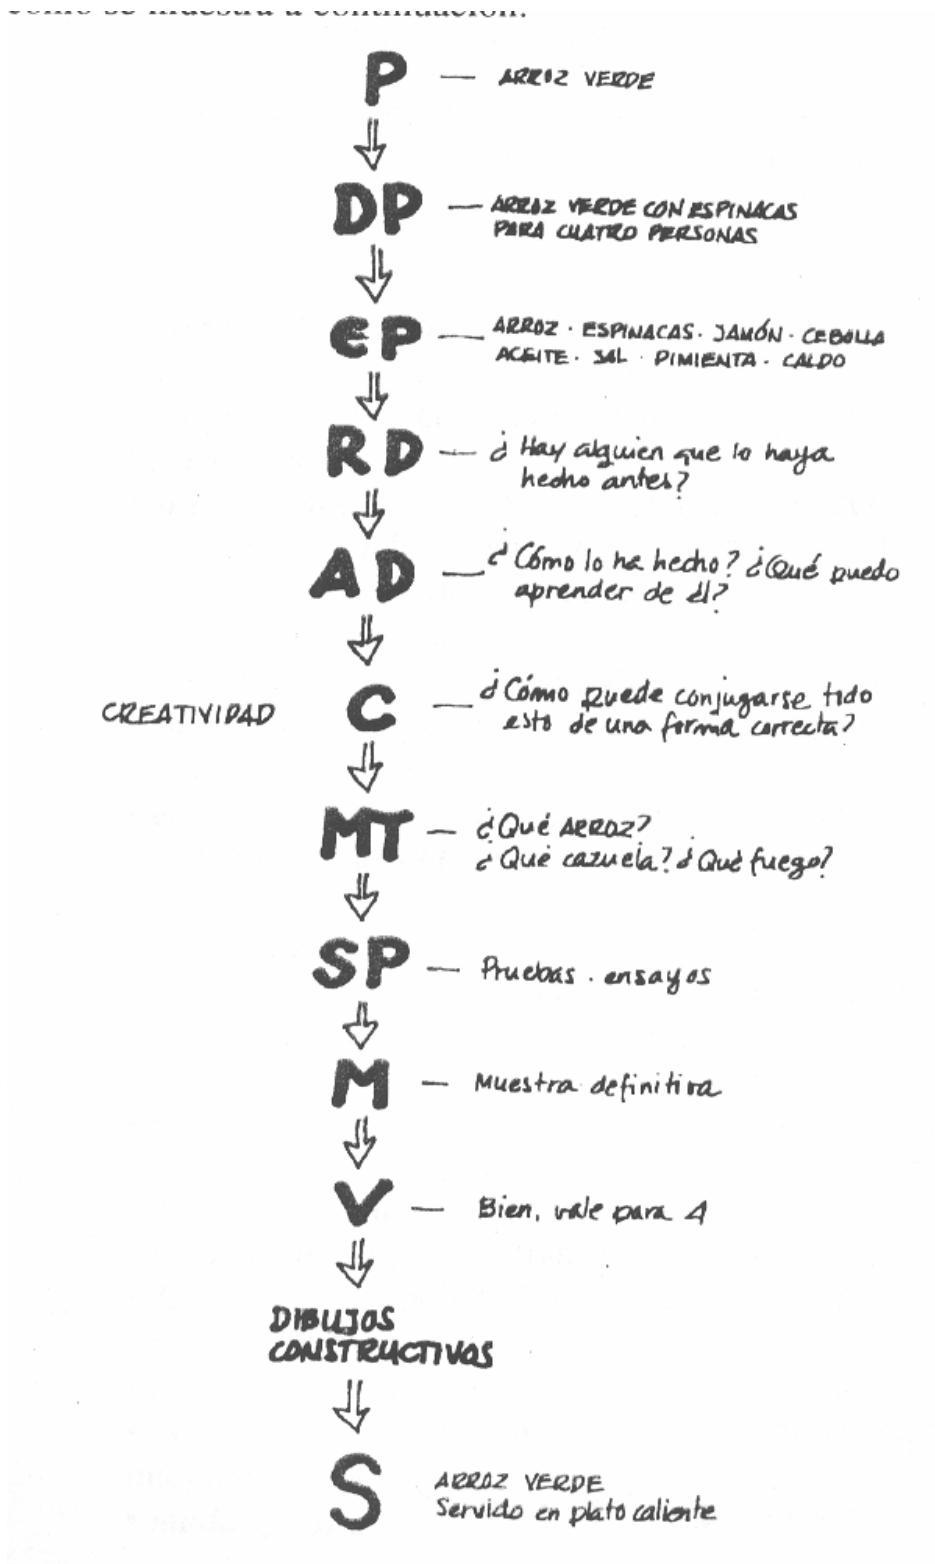 como se muestra a continuación:
P — ARROZ VERDE
DP — ARROZ VERDE CON ESPINACAS
PARA CUATRO PERSONAS
eP — ARROZ · ESPINACAS · JAMÓN · CEBOLLA
ACEITE · SAL · PIMIENTA · CALDO
RD — ¿Hay alguien que lo haya
hecho antes?
AD — ¿Cómo lo ha hecho? ¿Qué puedo
aprender de él?
CREATIVIDAD C — ¿Cómo puede conjugarse tido
esto de una forma correcta?
MT — ¿Qué ARROZ?
¿Qué cazuela? ¿Qué fuego?
SP — Pruebas . ensayos
M — Muestra definitiva
V — Bien, vale para 4
DIBUJOS
CONSTRUCTIVOS
S ARROZ VERDE
Servido en plato caliente